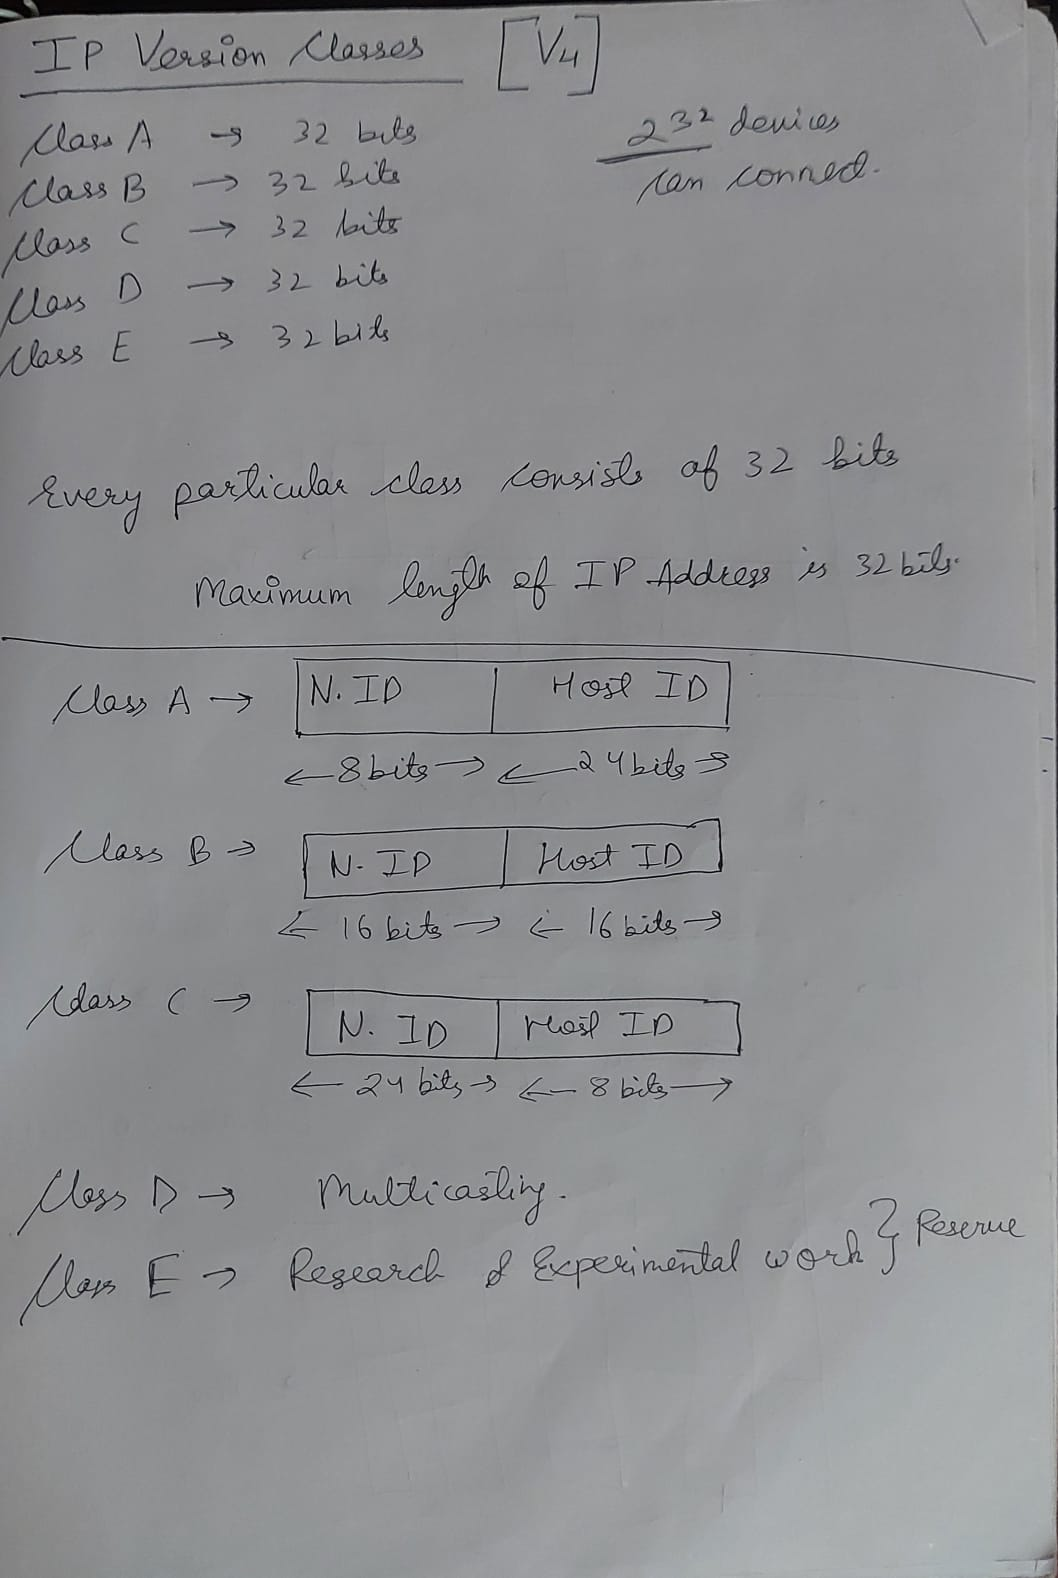 IP Version Classes [V4]
Class A → 32 bits
2^32 devices
can connect.
Class B → 32 bits
Class C → 32 bits
Class D → 32 bits
Class E → 32 bits
Every particular class consists of 32 bits
Maximum length of IP Address is 32 bits.
Class A → N. ID Host ID
← 8 bits → ← 24 bits →
Class B → N. ID Host ID
← 16 bits → ← 16 bits →
Class C → N. ID Host ID
← 24 bits → ← 8 bits →
Class D → Multicasting.
Class E → Research & Experimental work } Reserve